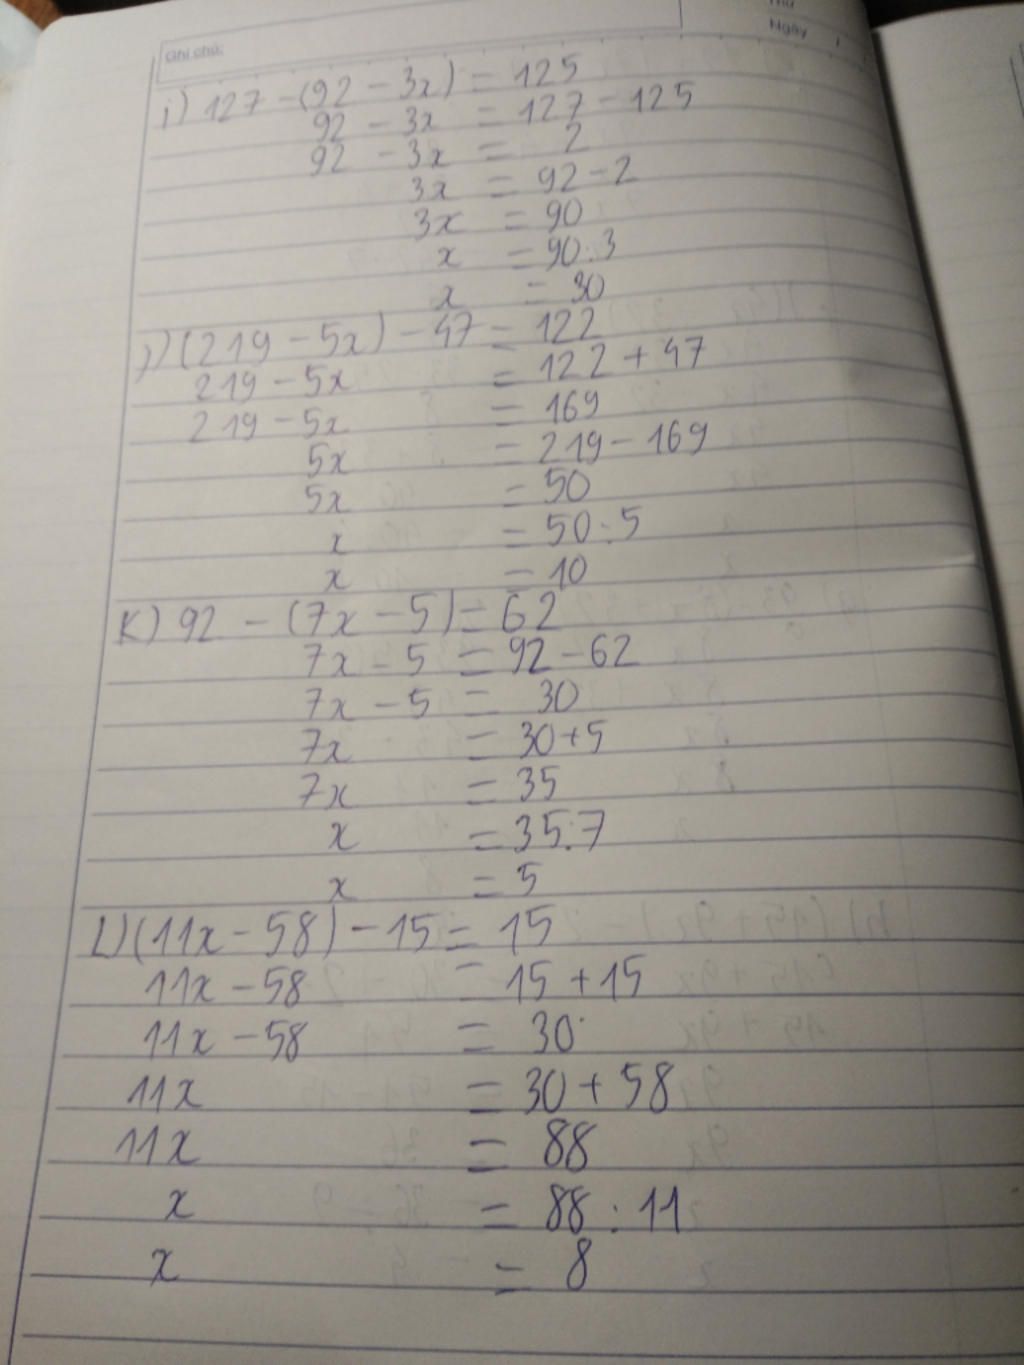 Ghi chú:
Thứ
Ngày /
i) 127 - (92 - 3x) = 125
92 - 3x = 127 - 125
92 - 3x = 2
3x = 92 - 2
3x = 90
x = 90 : 3
x = 30
j) (219 - 5x) - 47 = 122
219 - 5x = 122 + 47
219 - 5x = 169
5x = 219 - 169
5x = 50
x = 50 : 5
x = 10
K) 92 - (7x - 5) = 62
7x - 5 = 92 - 62
7x - 5 = 30
7x = 30 + 5
7x = 35
x = 35 : 7
x = 5
L) (11x - 58) - 15 = 15
11x - 58 = 15 + 15
11x - 58 = 30
11x = 30 + 58
11x = 88
x = 88 : 11
x = 8